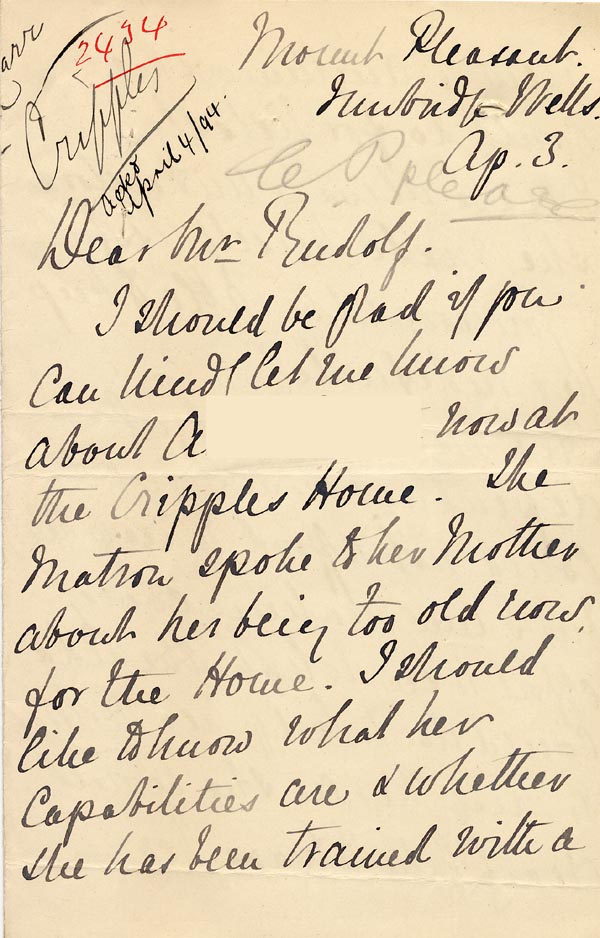 2434
Cripples
ackd
April 4/94.
Mount Pleasant.
Tunbridge Wells.
Ap. 3.
please
Dear Mr Rudolf.
I should be glad if you
can kindly let me know
about A now at
the Cripples Home. The
Matron spoke to her Mother
about her being too old now
for the Home. I should
like to know what her
capabilities are & whether
she has been trained with a